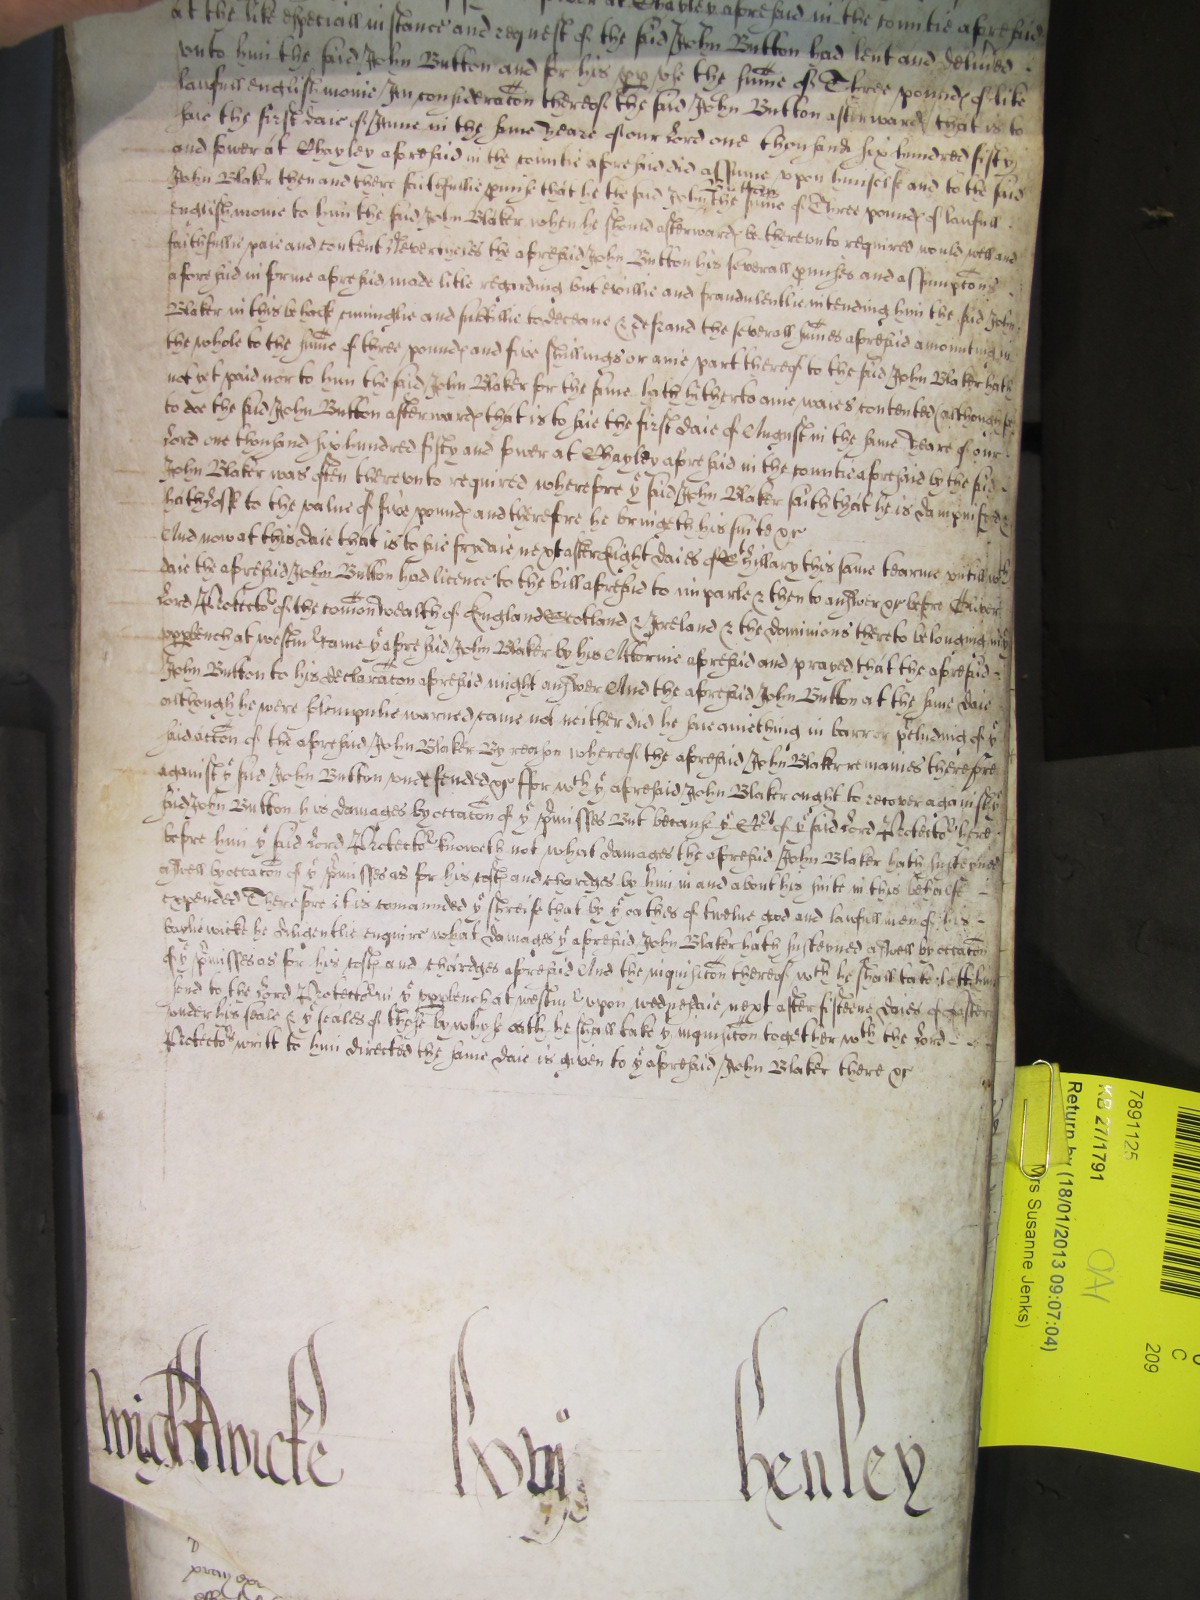 at Chayley aforesaid in the countie aforesaid
at the like especiall instance and request of the said John Button had lent and deliued
vnto him the said John Button and for his pp vse the sume of Three pounds of like
lawfull english monie In consideracon thereof the said John Button afterwards that is to
saie the first daie of June in the same yeare of our Lord one thousand six hundred fifty
and fower at Chayley aforesaid in the countie aforesaid did assume vpon himselfe and to the said
John Blaker then and there faithfullie pmise that he the said John the said sume of Three pounds of lawfull
english monie to him the said John Blaker when he should afterwards be therevnto required would well and
faithfullie paie and content Neverthelesse the aforesaid John Button his severall pmises and assumpcons
aforesaid in forme aforesaid made litle regarding but evillie and fraudulentlie intending him the said John
Blaker in this behalfe cuninglie and subtillie to deceave & defraud the severall sumes aforesaid amounting in
the whole to the sume of three pounds and five shillings or anie part thereof to the said John Blaker hath
not yet paid nor to him the said John Blaker for the same hath hitherto anie waies contented although soe
to doe the said John Button afterwards that is to saie the first daie of August in the same yeare of our
Lord one thousand six hundred fifty and fower at Chayley aforesaid in the countie aforesaid by the said
John Blaker was often therevnto required wherefore ye said John Blaker saith that he is dampnified &
hath losse to the value of five pounds and therefore he bringeth his suite &c
And now at this daie that is to saie frydaie next after Eight daies of St Hillary this same tearme vntill wch
daie the aforesaid John Button had licence to the bill aforesaid to imparle & then to answer &c before Oliver
Lord Protector of the comonwealth of England Scotland & Ireland & the dominions thereto belonging in ye
vpp bench at westm came ye aforesaid John Blaker by his Attornie aforesaid and prayed that the aforesaid
John Button to his declaracon aforesaid might answer And the aforesaid John Button at the same daie
although he were solempnlie warned came not neither did he saie aniething in barr or pcluding of ye
said accon of the aforesaid John Blaker By reason whereof the aforesaid John Blaker remaines therefore
against ye said John Button vndefended &c ffor wch ye aforesaid John Blaker ought to recover against ye
said John Button his damages by occacon of ye pmisses But because ye Crt of ye said Lord Protector here
before him ye said Lord Protector knoweth not what damages the aforesaid John Blaker hath susteyned
aswell by occacon of ye pmisses as for his costs and chardges by him in and about his suite in this behalfe
expended Therefore it is comaunded ye shreife that by ye oathes of twelve good and lawfull men of his
bayliewicke he diligentlie enquire what damages ye aforesaid John Blaker hath susteyned aswell by occacon
of ye pmisses as for his costs and chardges aforesaid And the inquisicon thereof wch he shall take lett him
send to the Lord Protector in ye vpp bench at westm vpon wednesdaie next after fifteene daies of Easter
vnder his seale & ye seales of those by whose oath he shall take ye inquisicon together wth the Lord
Protectors writt to him directed the same daie is given to ye aforesaid John Blaker there &c
Wightwicke
henley
pray
7891125
KB 27/1791
Return by (18/01/2013 09:07:04)
Mrs Susanne Jenks)
C
209